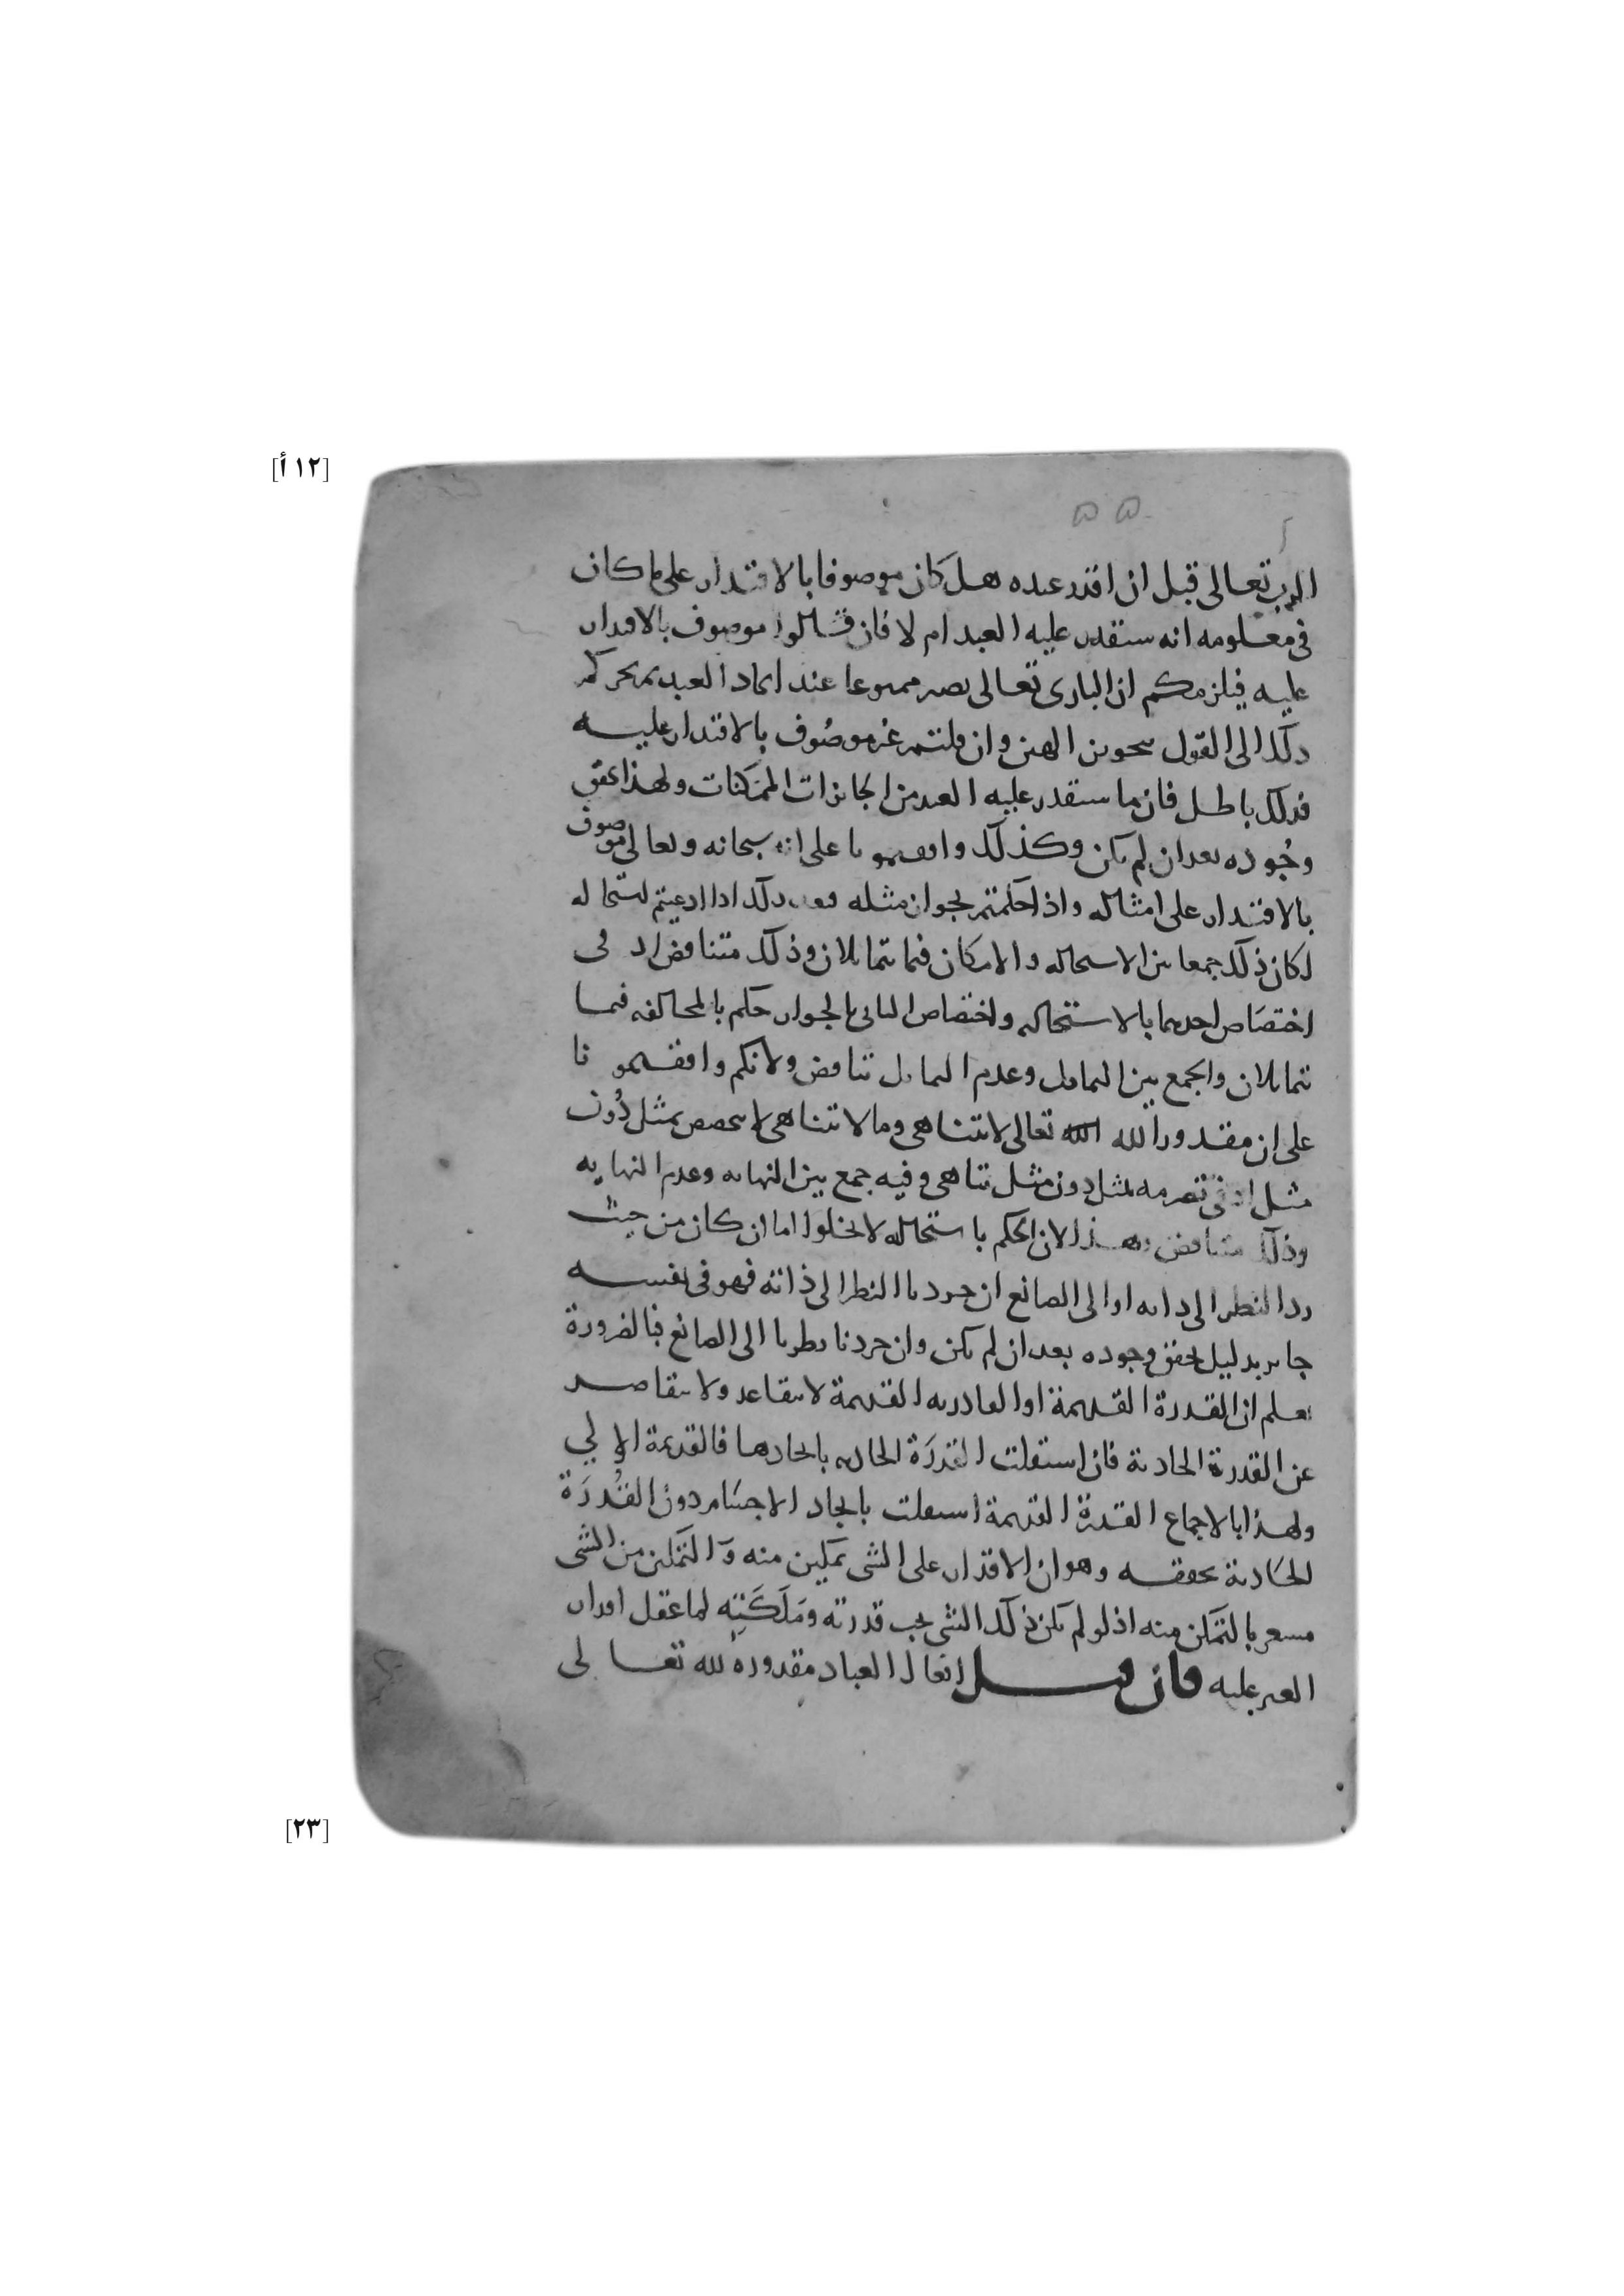 [١٢ أ]
الرب تعالى قبل ان اقدر عبده هل كان موصوفا بالاقتدار على ما كان
فى معلومه انه ستقدر عليه العبد ام لا فان قالوا موصوف بالاقتدار
عليه فيلزمكم ان البارى تعالى يصير ممنوعا عند ايجاد العبد ثم يجركم
ذلك الى القول بتجويز الهين وان قلتم غير موصوف بالاقتدار عليه
فذلك باطل فان ما ستقدر عليه العبد من الجائزات الممكنات ولهذا تحقق
وجوده بعد ان لم يكن وكذلك وافقمونا على انه سبحانه وتعالى موصوف
بالاقتدار على امثاله واذا حكمتم بجواز مثله ذلك اذا ادعيتم استحالته
لكان ذلك جمعا بين الاستحالة والامكان فيما يتماثلان وذلك متناقض اذ فى
اختصاص احدهما بالاستحالة واختصاص الثانى بالجواز حكم بالمخالفة فيما
يتماثلان والجمع بين التماثل وعدم التماثل تناقض ولانكم وافقمونا
على ان مقدورا لله الله تعالى لا تتناهى وما لا تتناهى لا يتخصص بمثل دُون
مثل اذ فى مثل دون مثل تناهى وفيه جمع بين النهاية وعدم النهايه
وذلك متناقض وهذا لان الحكم باستحالته لا يخلوا اما ان كان من حيث
ردا لنظر الى ذاته او الى الصانع ان جردنا النظر الى ذاته فهو فى نفسه
جايز بدليل تحقق وجوده بعد ان لم يكن وان جردنا نظرنا الى الصانع فبالضرورة
نعلم ان القدرة القديمة او القادرية القديمة لا تتقاعد ولا تتقاصر
عن القدرة الحادثة فان استقلت القدرَة الحادثه بايجادها فالقديمة اولى
ولهذا بالاجماع القدرة القديمة استقلت بايجاد الاجسام دون القُدرَة
الحَادثة يحققه وهو ان الاقدار على الشى تمكين منه وَالتمَكين من الشى
مسعر بالتمكن منه اذ لو لم يكن ذلك الشى تحت قدرته ومَلَكَتِه لما عقل اقدار
العبد عليه فان قيل افعال العباد مقدوره لله تعالى
[٢٣]